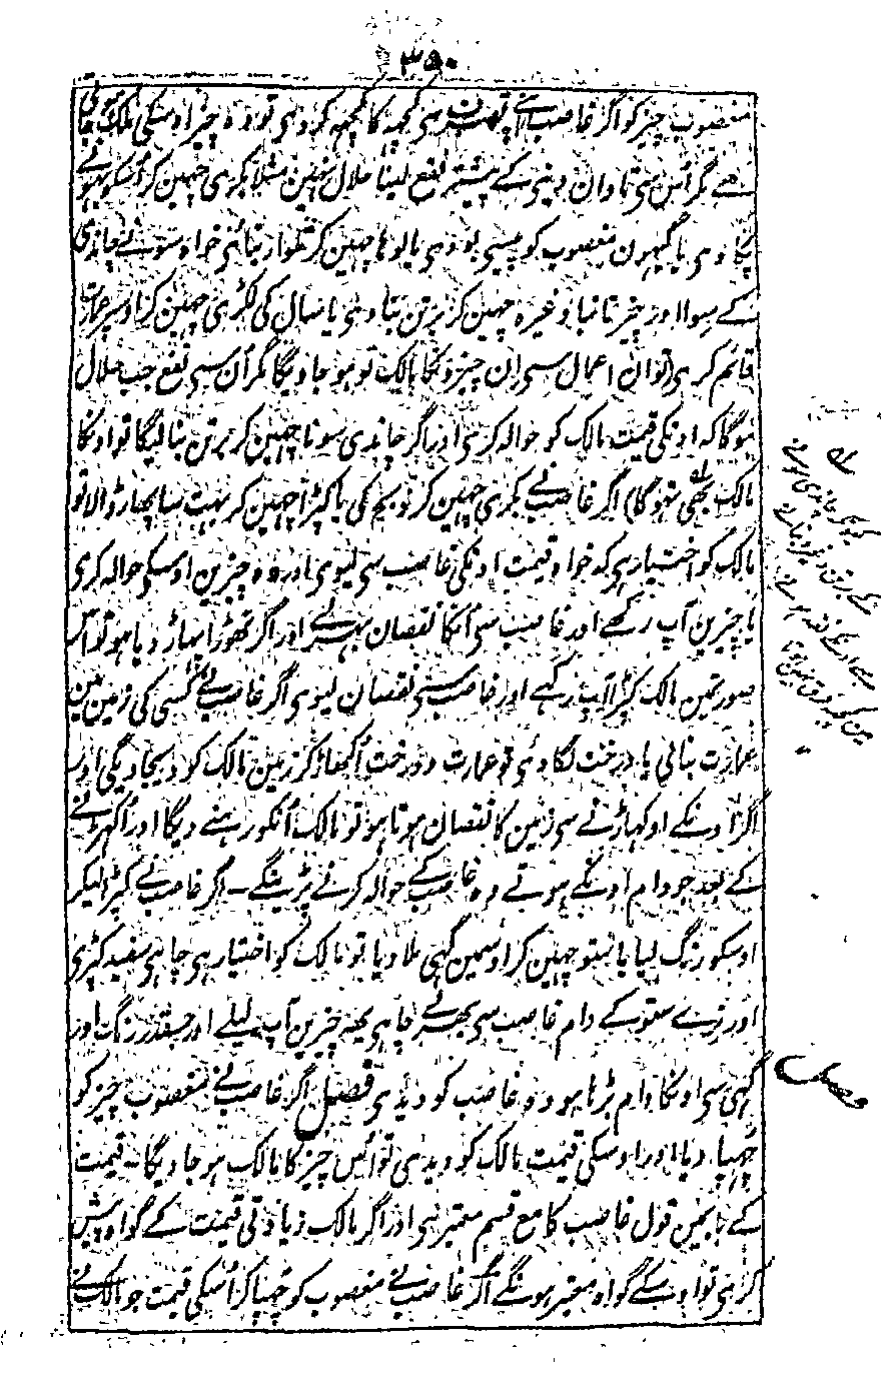 ۳۵۰
مغصوب چیز کو اگر غاصب اپنے تصرف سی کچہہ کا کچہہ کر دی تو وہ چیز اوسکی ملک ہوجاتی
ہے مگر اس سی تاوان دینی کے پیشتر نفع لینا حلال نہین مثلا بکری چہین کر اُسکو بہونے
پکا دی یا گیہون مغصوب کو پیسی بو دی یا لوہا چہین کر تلوار بنائی خواہ سونے چاندی
کے سوا اور چیز تانبا وغیرہ چہین کر برتن بنا دی یا سال کی لکڑی چہین کر اوسپر عمارت
قائم کری تو ان اعمال سی ان چیزونکا مالک تو ہو جاویگا مگر اُن سی نفع جب حلال
ہوگا کہ اونکی قیمت مالک کو حوالہ کری اور اگر چاندی سونا چہین کر برتن بنا لیگا تو اونکا
مالک بھی نہوگا) اگر غاصب نے بکری چہین کر ذبح کی یا کپڑا چہین کر بہت سا پہاڑ ڈالا تو
مالک کو اختیار ہی کہ خواہ قیمت اونکی غاصب سی لیوی اور وہ چیزین اوسکی حوالہ کری
یا چیزین آپ رکہے اور غاصب سی اُنکا نقصان بہرلے اور اگر تھوڑا پہاڑ دیا ہو تو اس
صورتمین مالک کپڑا آپ رکہے اور غاصب سی نقصان لیوی اگر غاصب نے کسی کی زمین مین
عمارت بنائی یا درخت لگا دئی تو عمارت و درخت اُکھاڑ کر زمین مالک کو دیجاویگی اور
اگر اونکے اوکہاڑنے سی زمین کا نقصان ہوتا ہو تو مالک اُنکو رہنے دیگا اور اُکہڑنے
کے بعد جو دام اونکے ہوتے وہ غاصب کے حوالہ کرنے پڑینگے ۔ اگر غاصب نے کپڑا لیکر
اوسکو رنگ لیا یا ستو چہین کر اوسمین گہی ملا دیا تو مالک کو اختیار ہی چاہی سفید کپڑی
اور نرے ستو کے دام غاصب سی بہرلے چاہی یہہ چیزین آپ لیلے اور جسقدر رنگ اور
گہی سی اونکا دام بڑہا ہو وہ غاصب کو دیدی فصل اگر غاصب نے مغصوب چیز کو
چُہپا دیا اور اوسکی قیمت مالک کو دیدی تو اس چیز کا مالک ہو جاویگا ۔ قیمت
کے باب مین قول غاصب کا مع قسم معتبر ہی اور اگر مالک زیادتی قیمت کے گواہ پیش
کری تو اوسکے گواہ معتبر ہونگے اگر غاصب نے مغصوب کو چُہپا کر اُسکی قیمت جو مالک نے
فصل